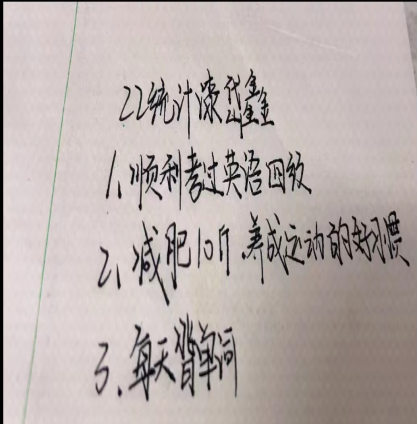 22统计漆岱鑫
1、顺利考过英语四级
2、减肥10斤、养成运动的好习惯
3、每天背单词